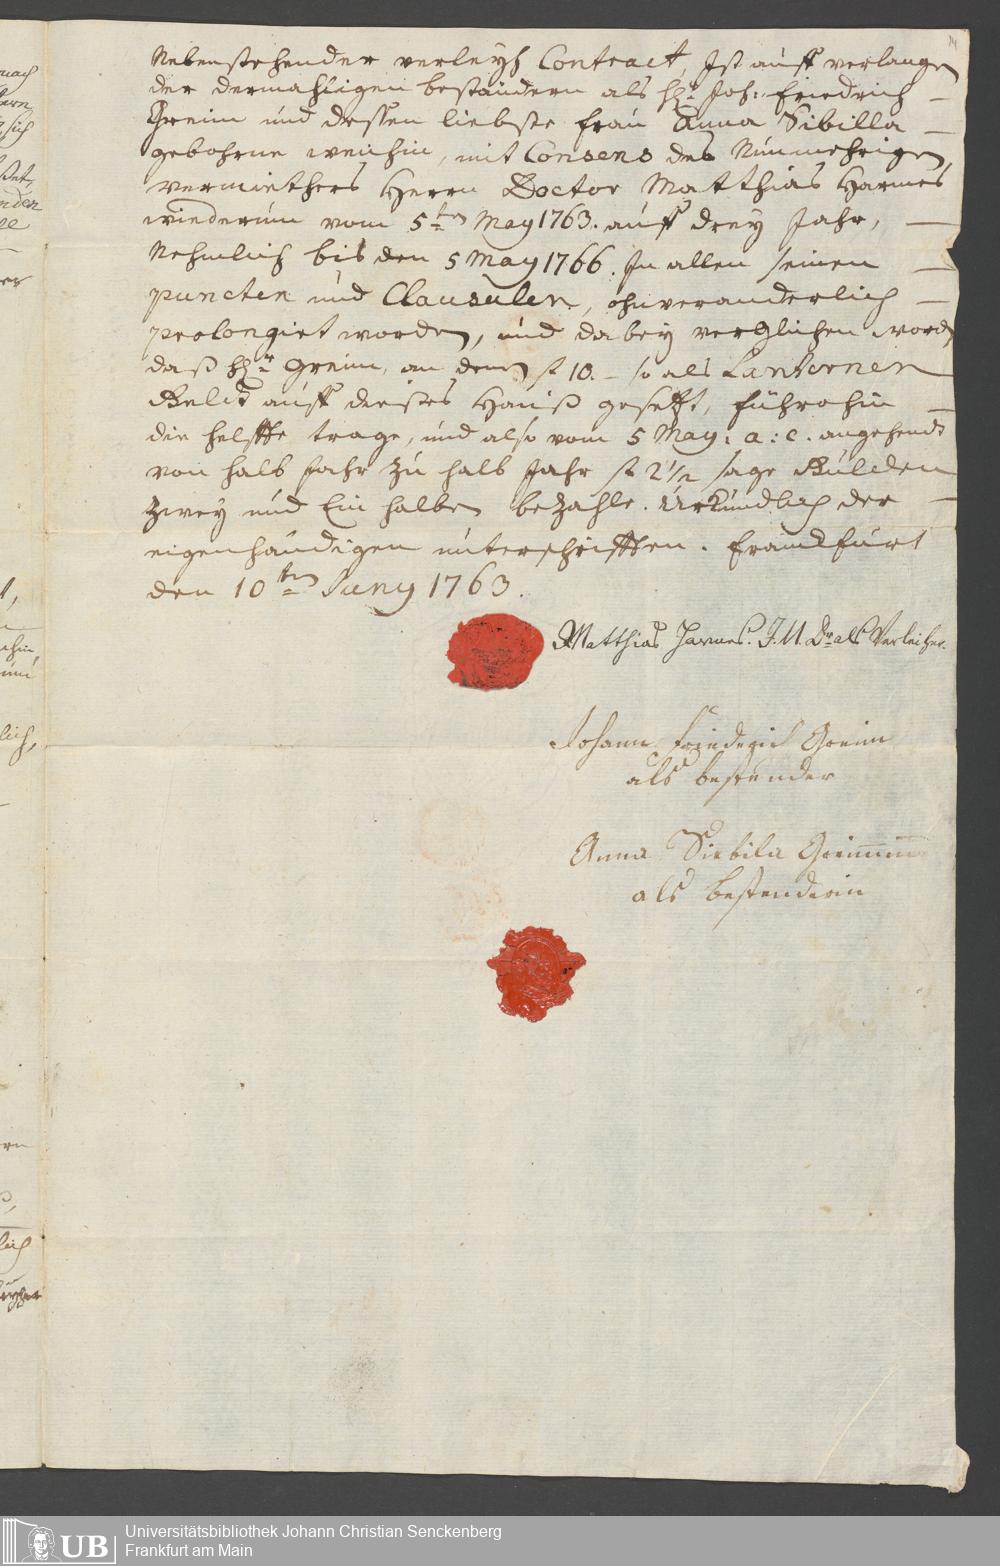 Nebenstehender verleyh Contract, Ist auff verlangen
der dermahligen beständern als HH: Joh: Friedrich
Greim und dessen liebste frau Anna Sibilla
gebohrne, mit Consens des Nunmehrigen
vermiethers Herrn Doctor Matthias Harmes
wiederum vom 5ten May 1763. auff drey Jahr,
Nehmlich bis den 5 May 1766. In allen seinen
puncten und Clausulen, ohnveranderlich
prolongirt worden, und dabey verglichen word
daß HHr Greim, an denen f 10. – so als Lanternen
Geld auff dieses Hauß gesetzt, führohin
die helffte trage, und also vom 5 May: a: c. angehend
von halb Jahr zu halb Jahr f 2 1/2 sage Gülden
zwey und Ein halben bezahle. Urkundlich der
eigenhändigen unterschrifften. Franckfurt
den 10ten Juny 1763.
Matthias Harmes. J. U. Dr als Verleiher.
Johann Friederich Greim
als bestender
Anna Siebila Greimmin
als bestenderin
UB
Universitätsbibliothek Johann Christian Senckenberg
Frankfurt am Main